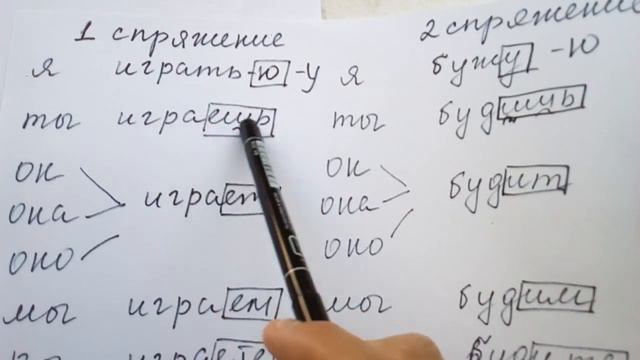 1 спряжение 2 спряжение
я играть-ю -у я бужу -ю
ты играешь ты будишь
он он
она играет она будит
оно оно
мы играем мы будим
играете